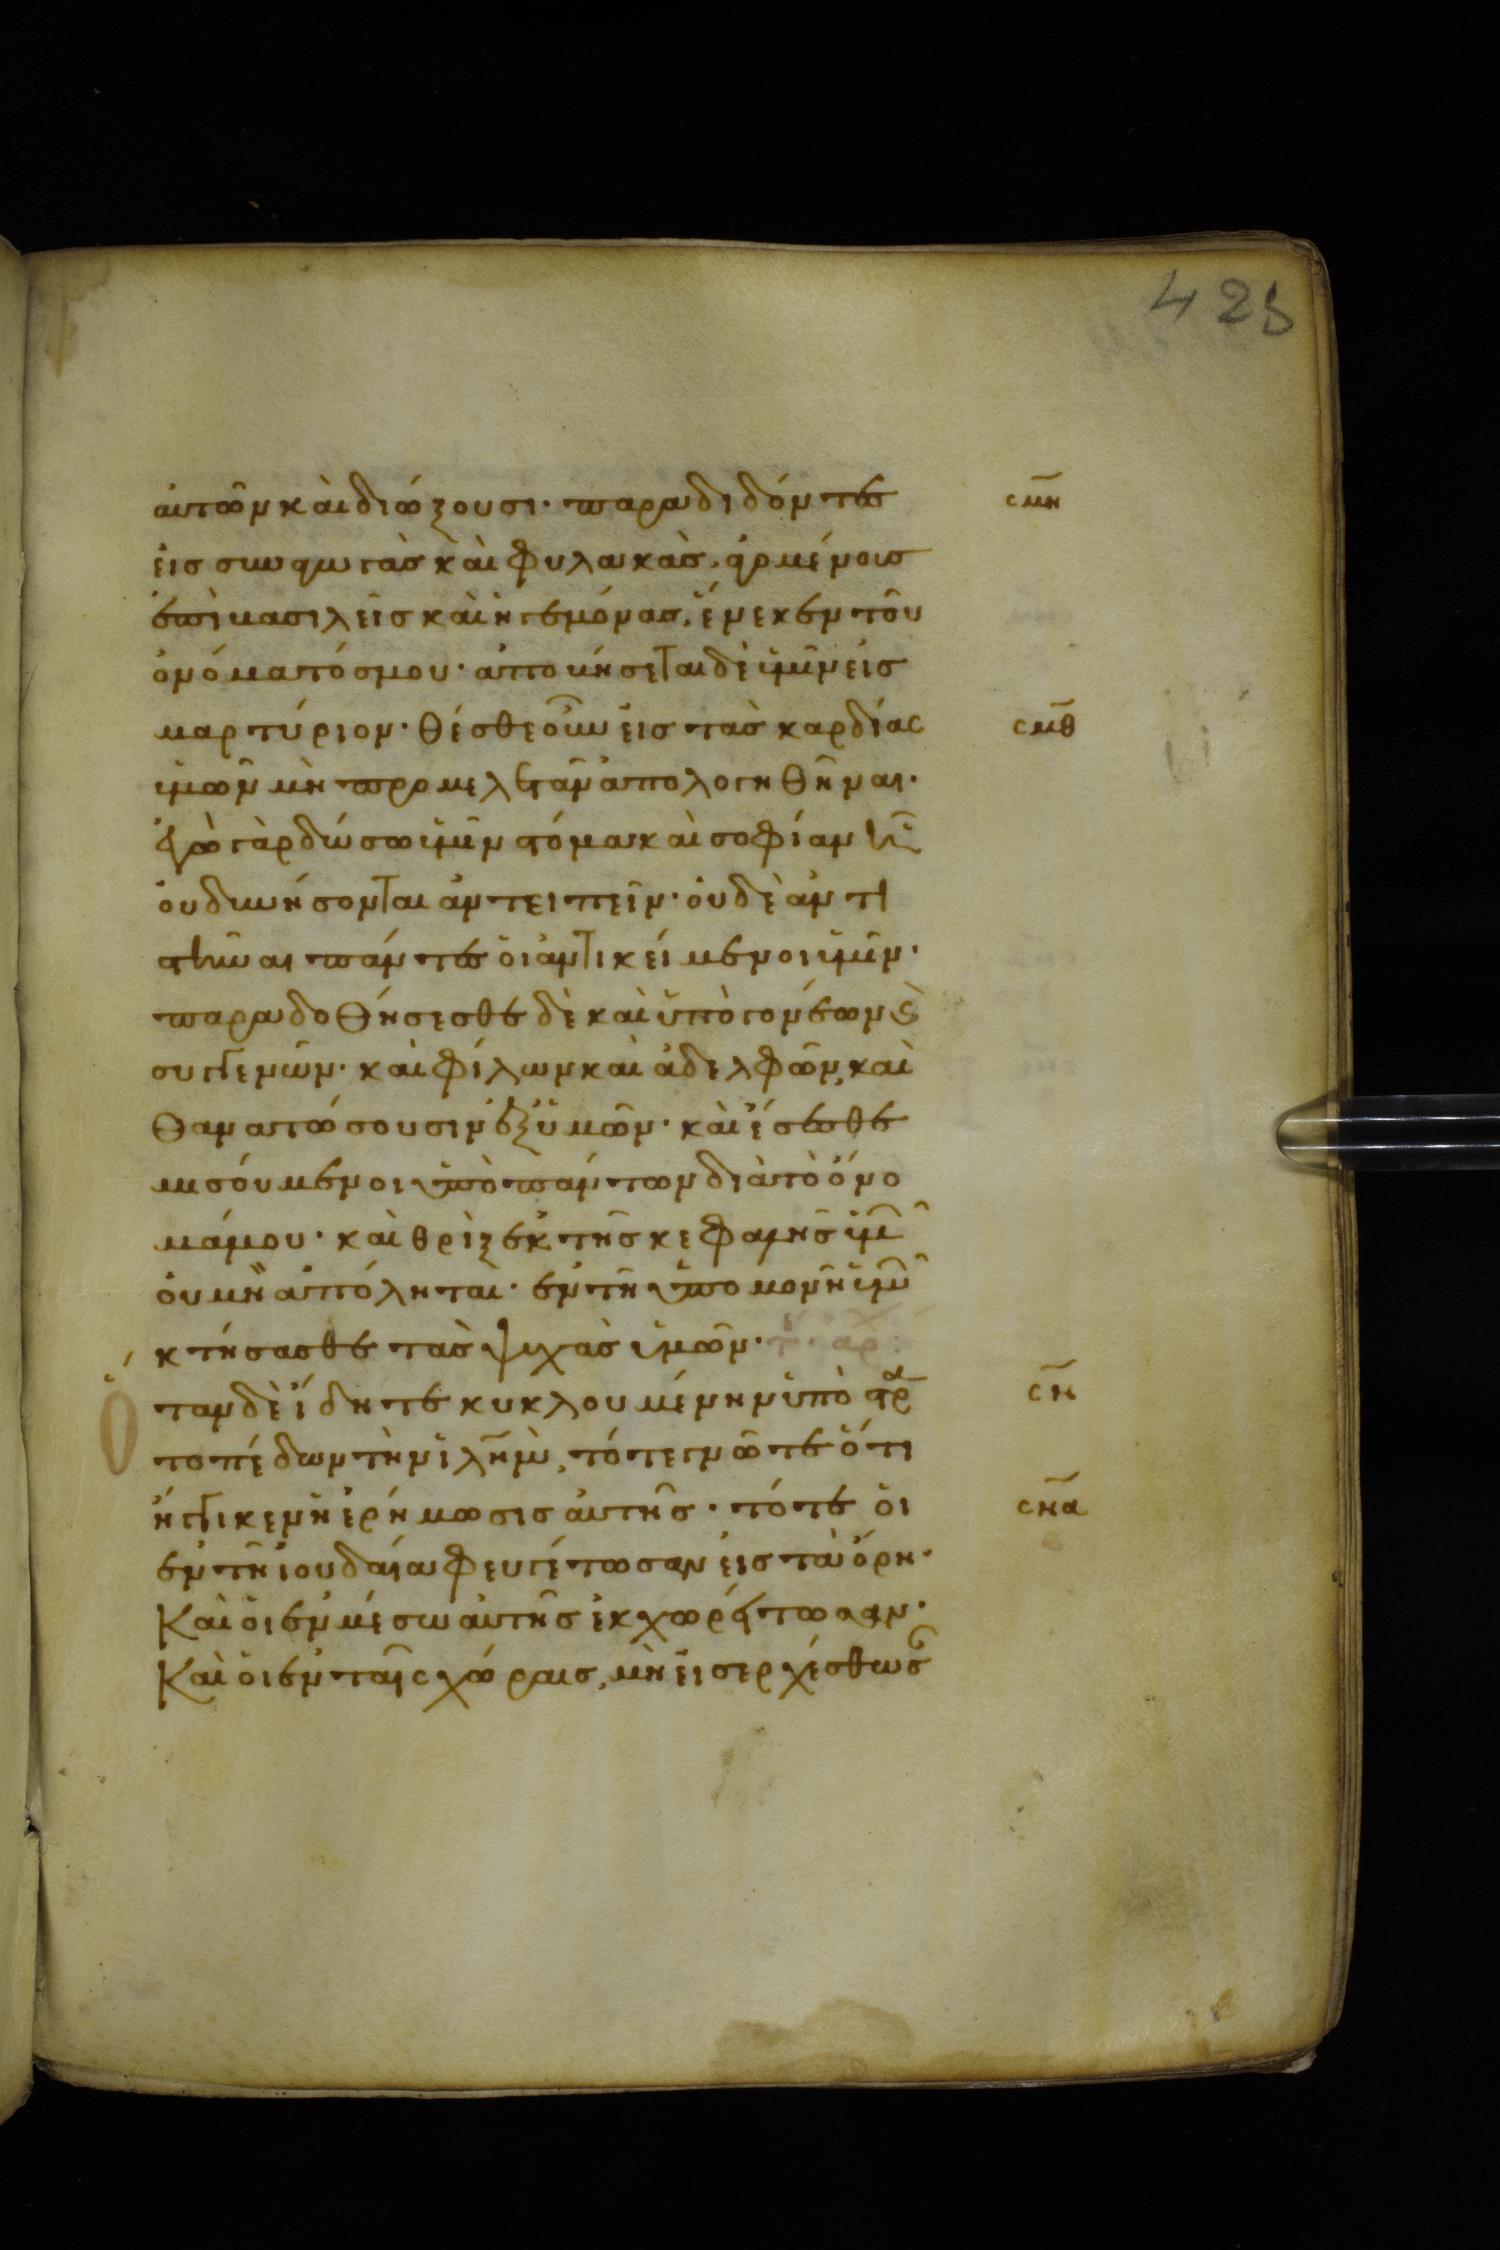 428
αυτῶν καὶ διώξουσι· παραδιδόντες
σμη
εἰς συναγωγὰς καὶ φυλακὰς, ἀγομένους
ἐπὶ βασιλεῖς καὶ ἡγεμόνας, ἕνεκεν τοῦ
ὀνόματός μου· ἀποβήσεται δὲ ὑμῖν εἰς
μαρτύριον· θέσθε οὖν εἰς τὰς καρδίας
σμθ
ὑμῶν μὴ προμελετᾶν ἀπολογηθῆναι·
ἐγὼ γὰρ δώσω ὑμῖν στόμα καὶ σοφίαν ᾗ
οὐ δυνήσονται ἀντειπεῖν· οὐδὲ ἀντι
στῆναι πάντες οἱ ἀντικείμενοι ὑμῖν·
παραδοθήσεσθε δὲ καὶ ὑπὸ γονέων ϗ
συγγενῶν· καὶ φίλων καὶ ἀδελφῶν, καὶ
θανατώσουσιν ἐξ ὑμῶν· καὶ ἔσεσθε
μισούμενοι ὑπὸ πάντων διὰ τὸ ὄνο
μά μου· καὶ θρὶξ ἐκ τῆς κεφαλῆς ὑμ
οὐ μὴ ἀπόληται· ἐν τῇ ὑπομονῇ ὑμ
κτήσασθε τὰς ψυχὰς ὑμῶν·
Ὅταν δὲ ἴδητε κυκλουμένην ὑπὸ στρα
σν
τοπέδων τὴν ἰλημ, τότε γνῶτε ὅτι
ἤγγικεν ἡ ἐρήμωσις αὐτῆς· τότε οἱ
σνα
ἐν τῇ ἰουδαία φευγέτωσαν εἰς τὰ ὄρη·
Καὶ οἱ ἐν μέσω αὐτῆς ἐκχωρείτωσαν·
Καὶ οἱ ἐν ταῖς χώραις, μὴ εἰσερχέσθωσ